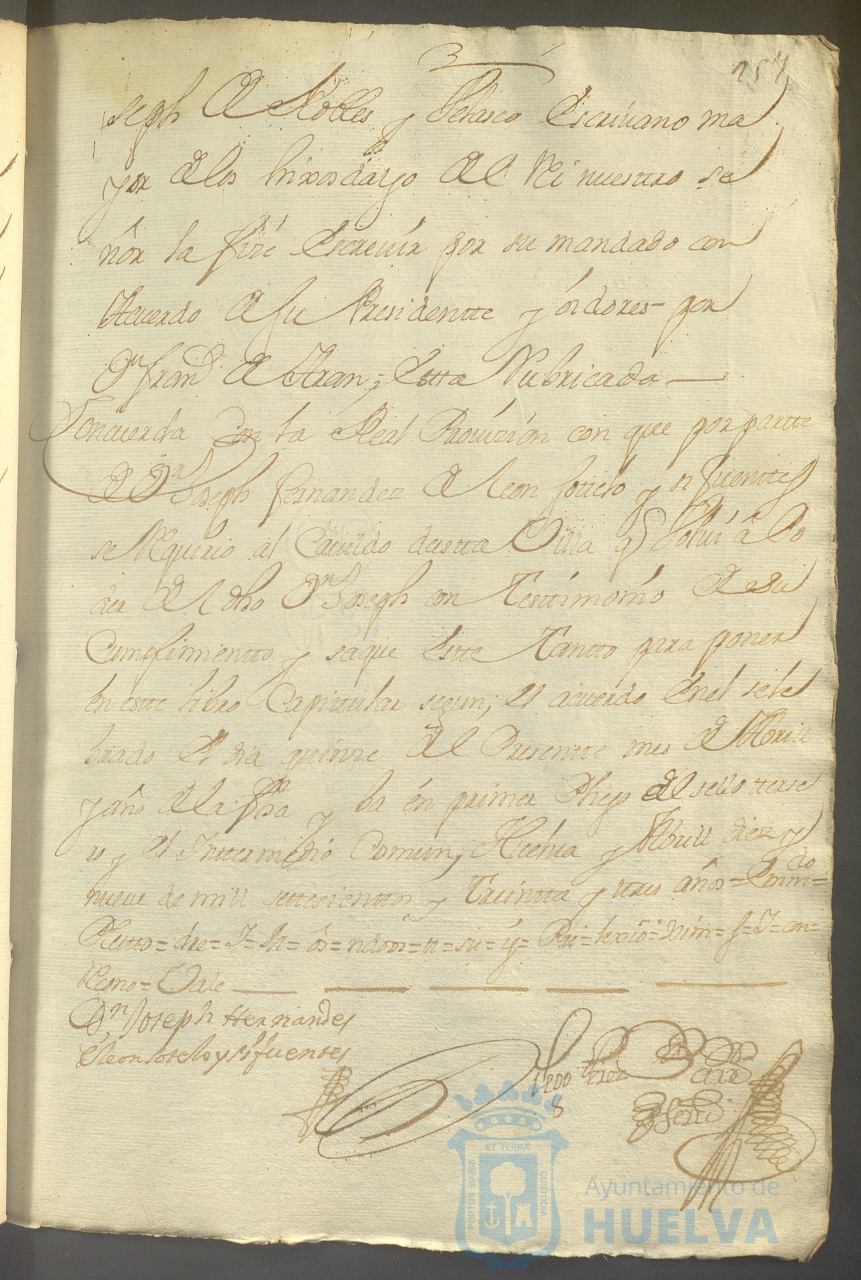 3
257
seph de Robles y Velasco Escrivano ma
yor de los hixosdalgo del Rei nuestro se
ñor la fize Escrevir por su mandado con
Acuerdo de su Presidentte y oidores por
Dn. Franco. de Aran; Esta Rubricada
Concuerda con la Real Provizión con que por partte
de Dn. Joseph Fernandez de leon sotelo y sifuenttes
se Requirio al Cavildo desta Villa q volví â Po
der del dho Dn. Joseph con Testtimonio de su
Cumplimientto y saque Este Tantto para poner
en este libro Capittular segun, el acuerdo En el sele
brado El dia quinse del Presentte mes de Abrill
y año de la fha y ba en primer Pliego del sello terse
ro y el Inttermedio Comun, Huelva y Abrill diez y
nueve de mill settesienttos y Treintta y tres años=Enmdo=
con=
Remo= Vale
Dn Joseph Hernandes
de leon sotelo y sifuentes
ET TERRÆ
PORTUS MARIS
CUSTODIA
Ayuntamiento de
HUELVA